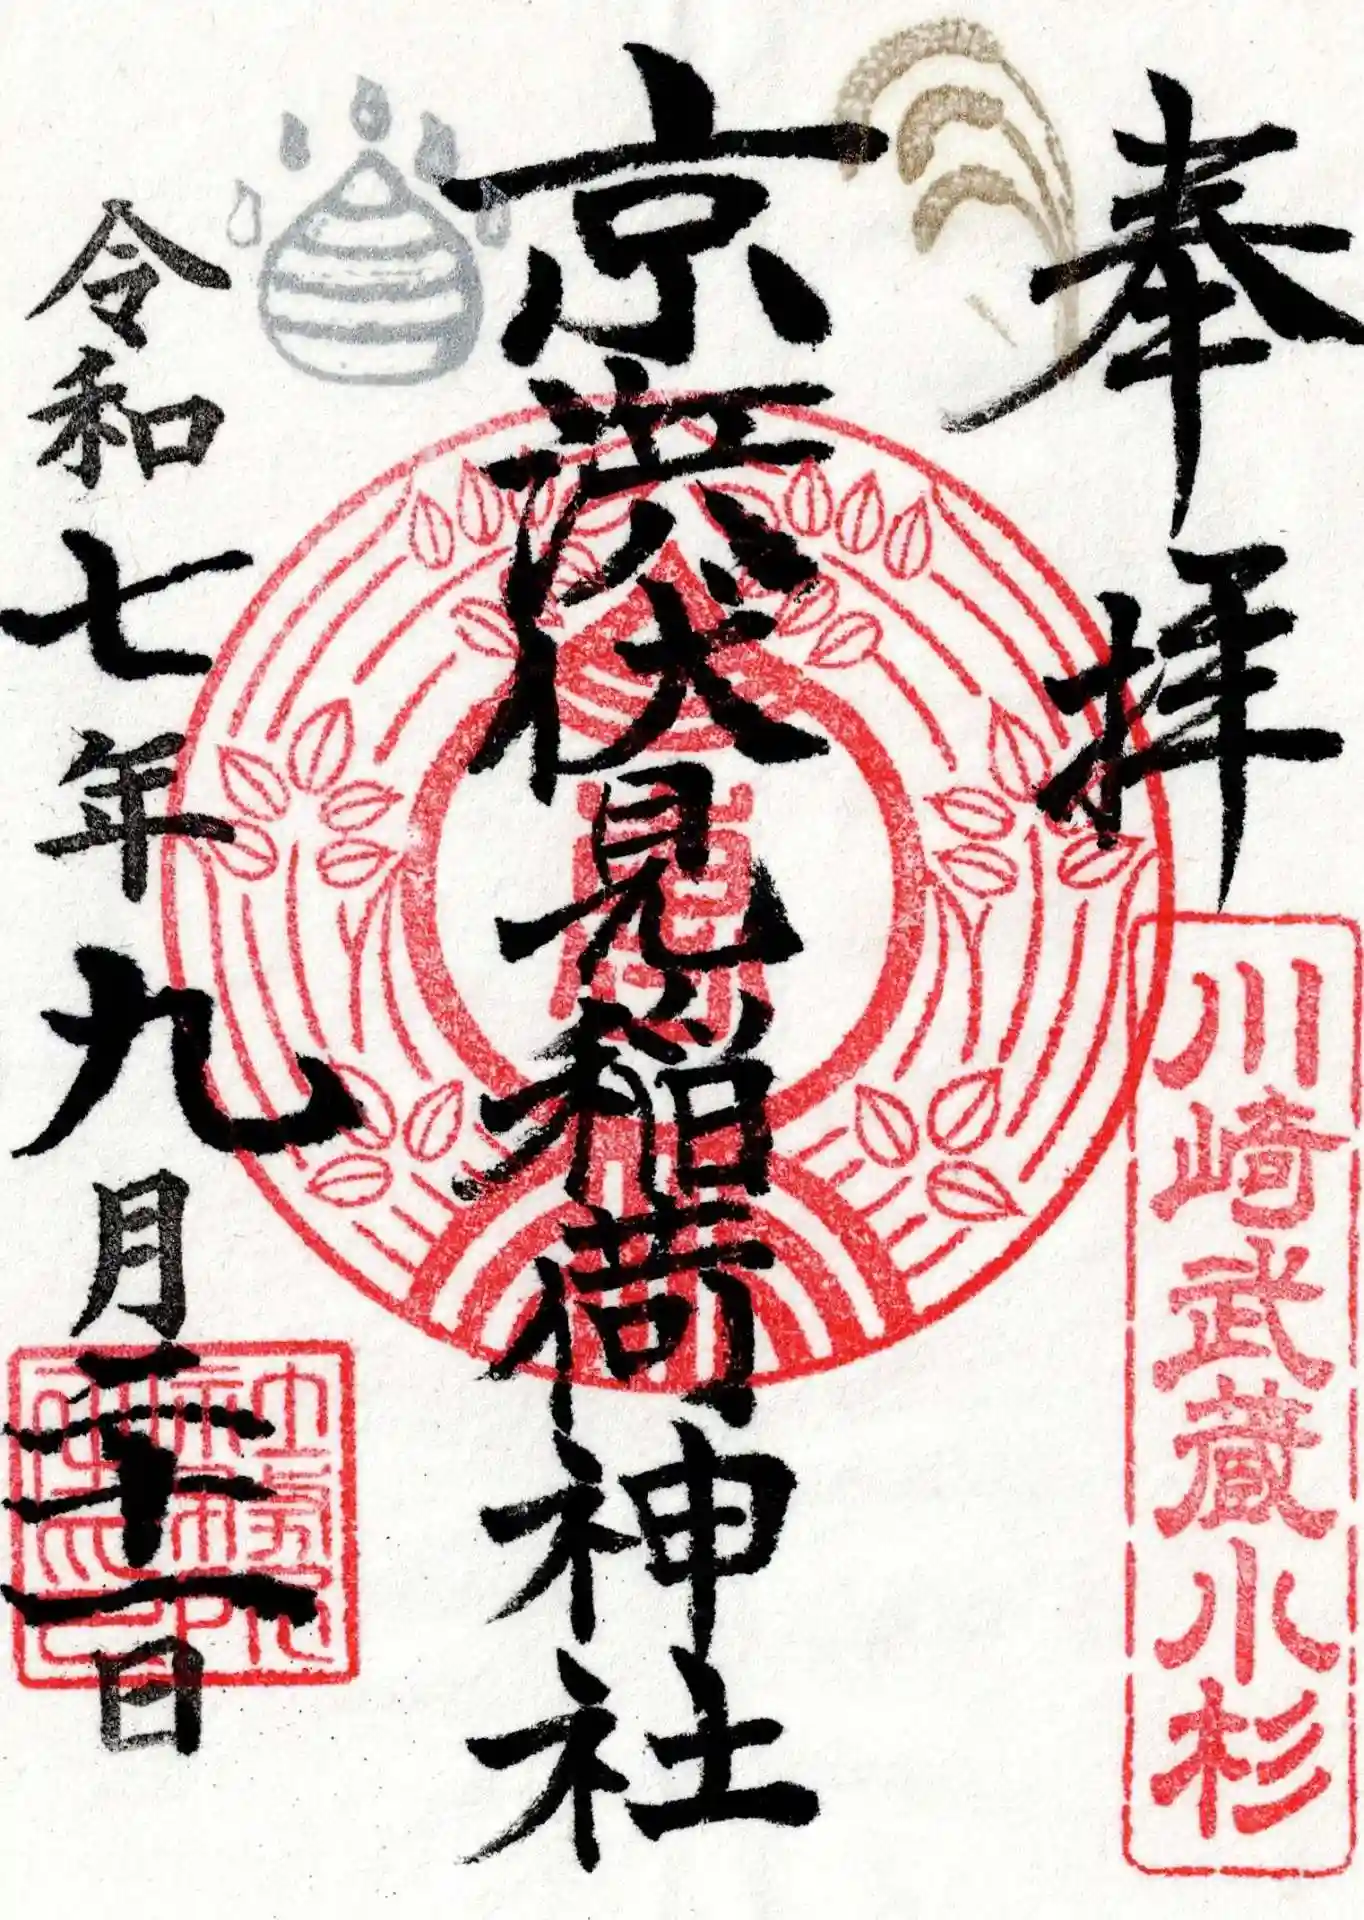 奉拝
川崎武蔵小杉
京濱伏見稲荷神社
令和七年九月二十一日